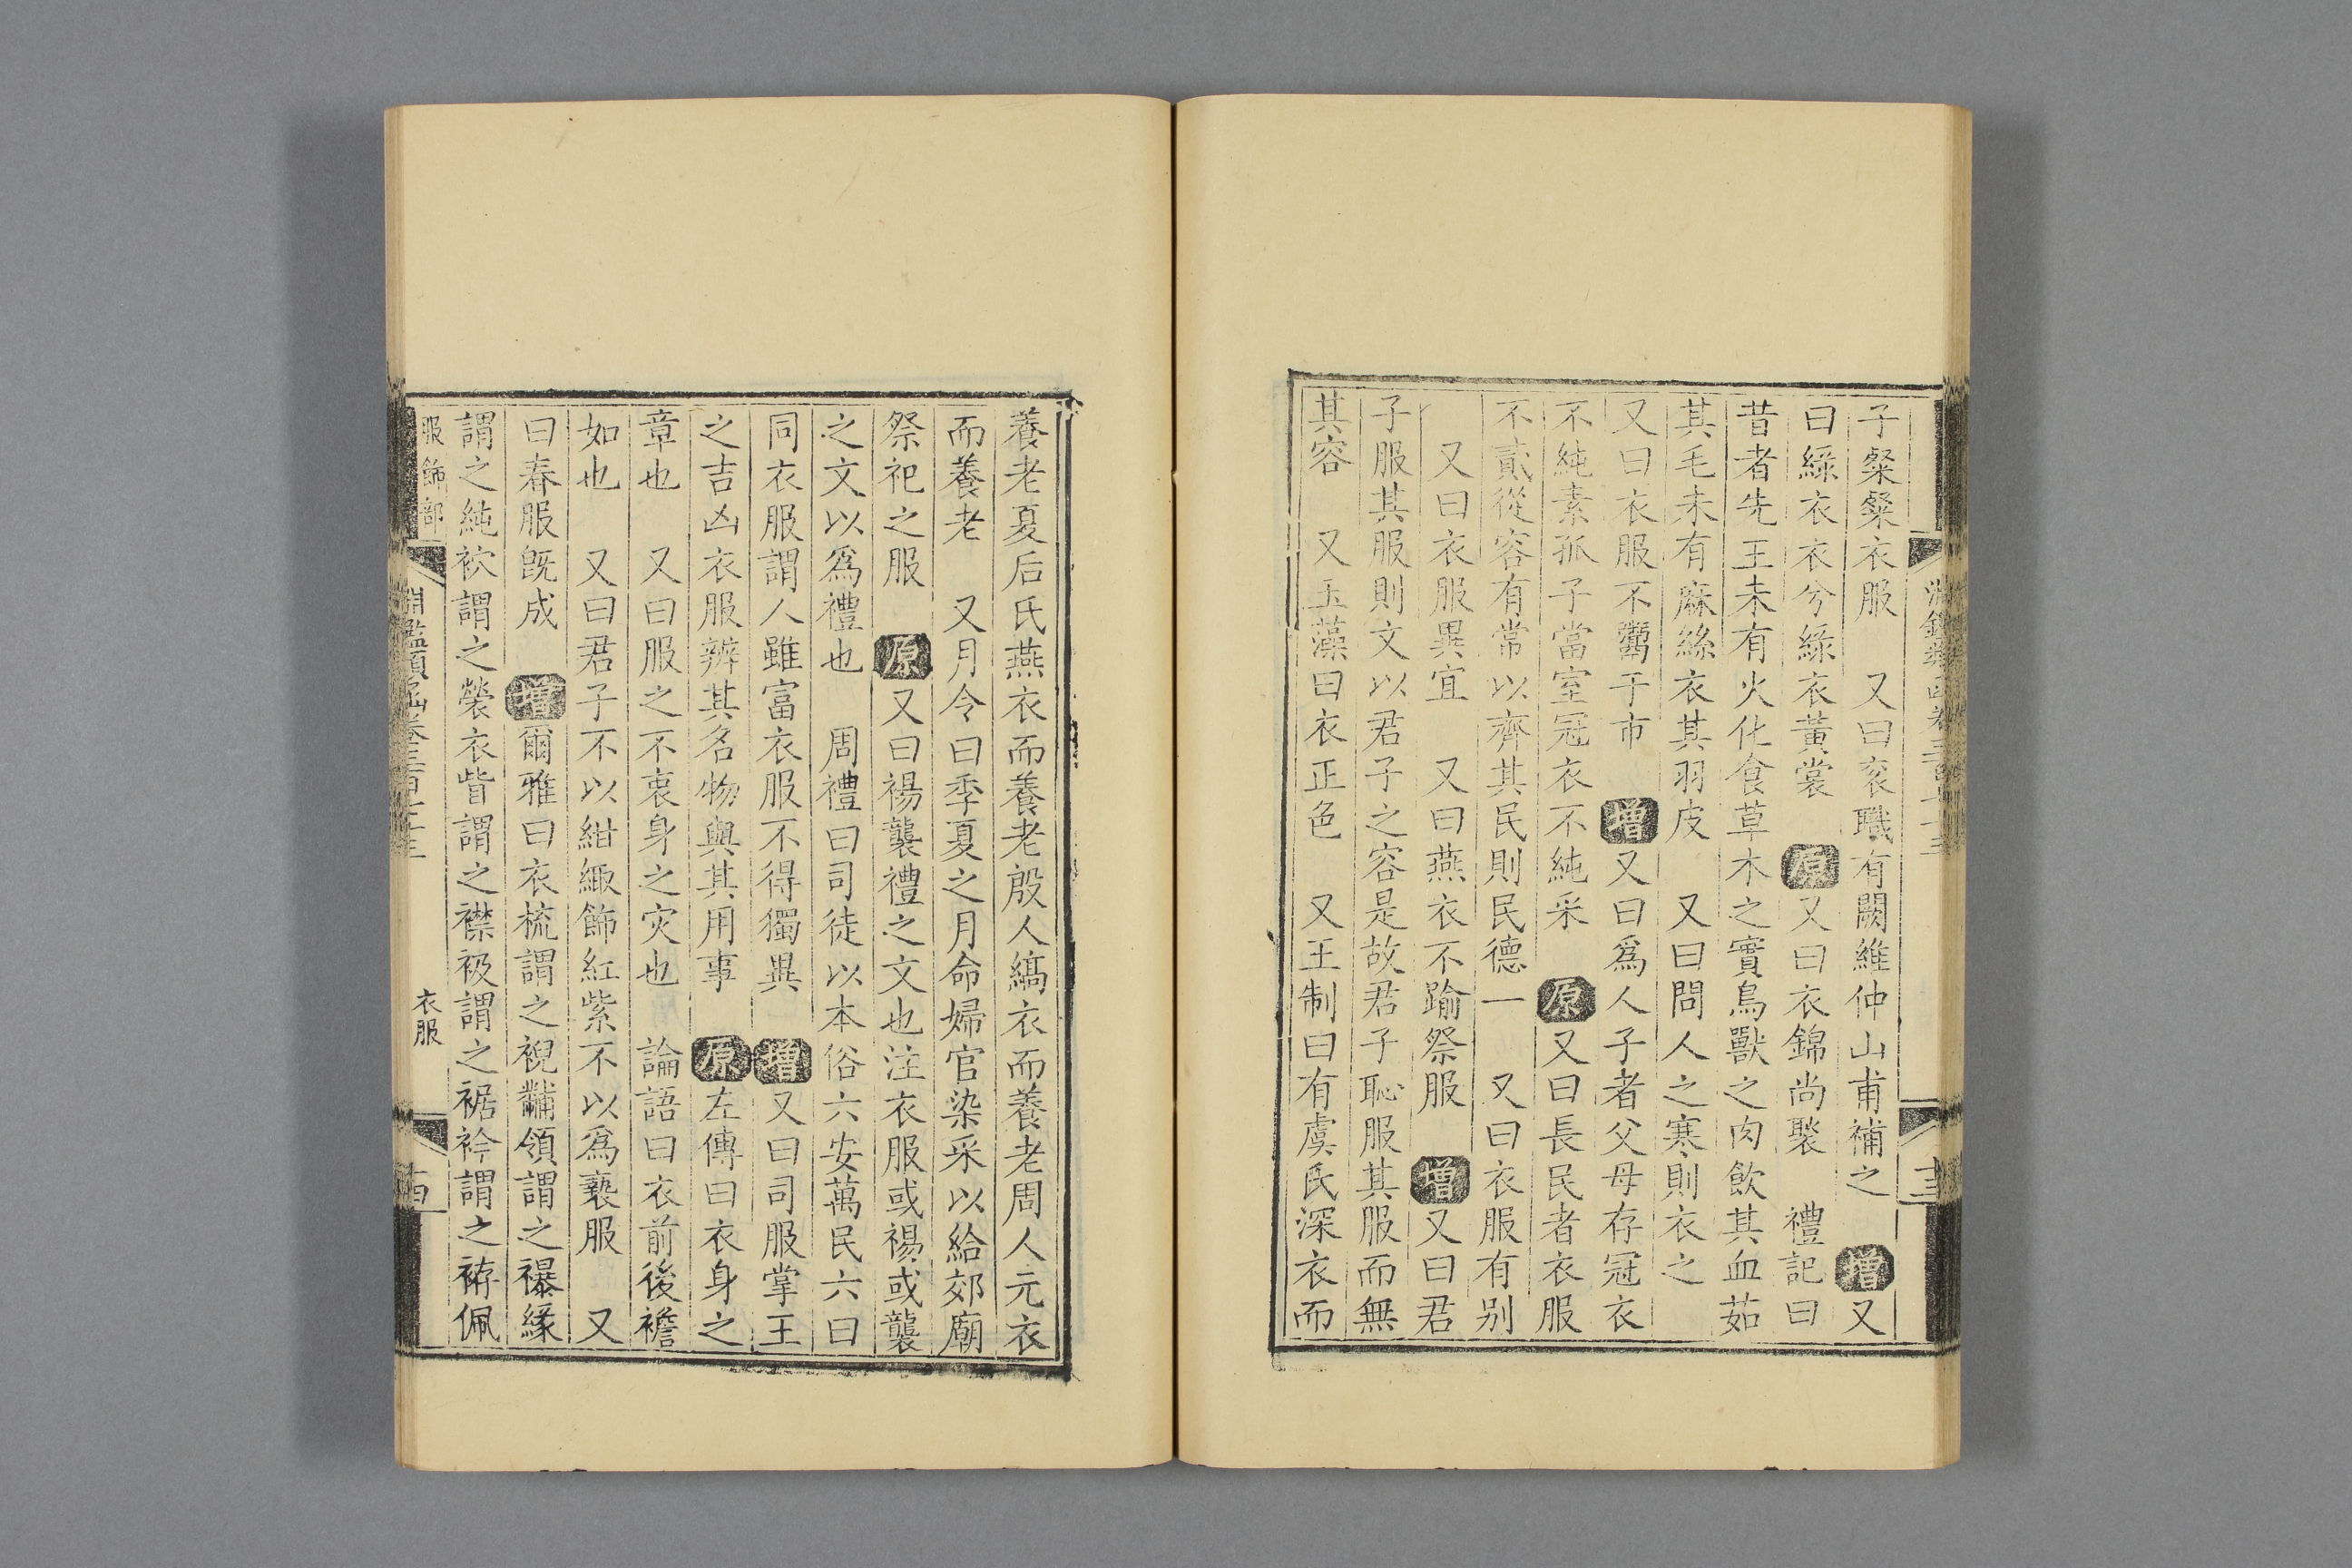 子粲粲衣服　又曰袞職有闕維仲山甫補之　增又
曰綠衣衣兮綠衣黃裳　原又曰衣錦尚褧　禮記曰
昔者先王未有火化食草木之實鳥獸之肉飲其血茹
其毛未有麻絲衣其羽皮　又曰問人之寒則衣之
又曰衣服不鬻于市　增又曰爲人子者父母存冠衣
不純素孤子當室冠衣不純采　原又曰長民者衣服
不貳從容有常以齊其民則民德一　又曰衣服有别
又曰衣服異宜　又曰燕衣不踰祭服　增又曰君
子服其服則文以君子之容是故君子恥服其服而無
其容　又玉藻曰衣正色　又王制曰有虞氏深衣而
養老夏后氏燕衣而養老殷人縞衣而養老周人元衣
而養老　又月令曰季夏之月命婦官染采以給郊廟
祭祀之服　原又曰裼襲禮之文也注衣服或裼或襲
之文以爲禮也　周禮曰司徒以本俗六安萬民六曰
同衣服謂人雖富衣服不得獨異　增又曰司服掌王
之吉凶衣服辨其名物與其用事　原左傳曰衣身之
章也　又曰服之不衷身之灾也　論語曰衣前後襜
如也　又曰君子不以紺緅飾紅紫不以爲褻服　又
曰春服旣成　增爾雅曰衣梳謂之裞黼領謂之襮緣
謂之純袕謂之褮衣眥謂之襟衱謂之裾衿謂之袸佩
服飾部
淵鑑類函卷三百七十三
衣服